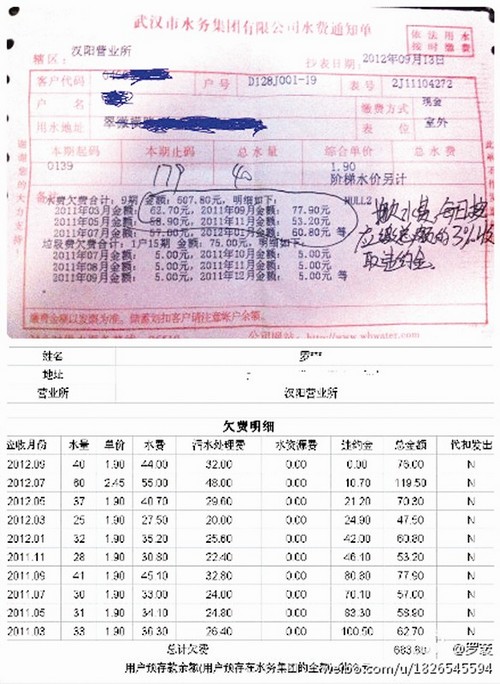 武汉市水务集团有限公司水费通知单
依法用水
按时缴费
辖区: 汉阳营业所 抄表日期: 2012年09月13日
客户代码 户号 D128J001-19 表号 2J11104272
户名 缴费方式 现金
用水地址 表位 室外
本期起码 本期止码 总水量 综合单价 总水费
0139 179 40 1.90
阶梯水价另计
备注 NULL2
水费欠费合计: 9期 金额: 607.80元, 明细如下:
2011年03月金额: 62.70元, 2011年09月金额: 77.90元
2011年05月金额: 58.90元, 2011年11月金额: 53.20元
2011年07月金额: 57.00元, 2012年01月金额: 60.80元 等
垃圾费欠费合计: 1户15期 金额: 75.00元, 明细如下:
2011年07月金额: 5.00元, 2011年10月金额: 5.00元
2011年08月金额: 5.00元, 2011年11月金额: 5.00元
2011年09月金额: 5.00元, 2011年12月金额: 5.00元 等
欠水费,每日按
应缴总额的3‰收
取违约金
谢谢您的大力支持!
缴费金额以发票为准, 储蓄划扣客户请注意帐户余额。
公司网站: http://www.whwater.com
姓名 罗***
地址
营业所 汉阳营业所
欠费明细
应收月份 水量 单价 水费 污水处理费 水资源费 违约金 总金额 代扣发出
2012.09 40 1.90 44.00 32.00 0.00 0.00 76.00 N
2012.07 60 2.45 55.00 48.00 0.00 10.70 119.50 N
2012.05 37 1.90 40.70 29.60 0.00 21.20 70.30 N
2012.03 25 1.90 27.50 20.00 0.00 24.90 47.50 N
2012.01 32 1.90 35.20 25.60 0.00 42.00 60.80 N
2011.11 28 1.90 30.80 22.40 0.00 46.10 53.20 N
2011.09 41 1.90 45.10 32.80 0.00 80.80 77.90 N
2011.07 30 1.90 33.00 24.00 0.00 70.10 57.00 N
2011.05 31 1.90 34.10 24.80 0.00 83.30 58.90 N
2011.03 33 1.90 36.30 26.40 0.00 100.50 62.70 N
总计欠费 683.80
@罗裘
用户预存款余额(用户预存在水务集团的金额)
weibo.com/u/1826545594